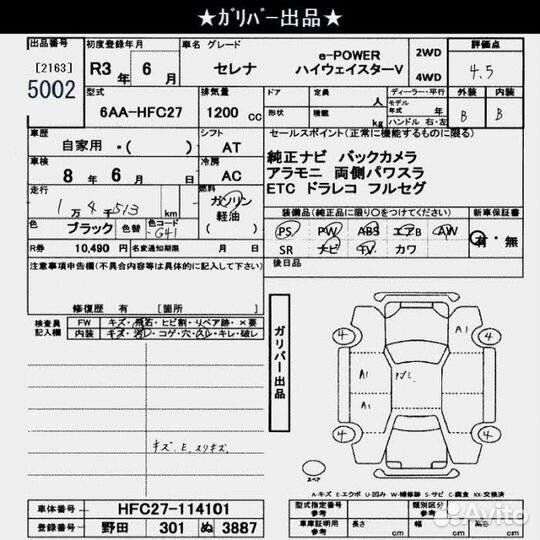 ★ｶﾞﾘﾊﾞｰ出品★
出品番号 初度登録年月 車名 グレード e-POWER 2WD 評価点
[2163] R3 年 6 月 セレナ ハイウェイスターV 4WD 4.5
5002 型式 排気量 ドア 定員 人 ディーラー・平行 外装 内装
6AA-HFC27 1200 cc 形状 積載 kg モデル 年式 年 ハンドル 右・左 B B
車歴 シフト セールスポイント(正常に機能するものに限る)
自家用 ・( ) AT 純正ナビ バックカメラ
車検 冷房 アラモニ 両側パワスラ
8 年 6 月 AC ETC ドラレコ フルセグ
走行 燃料
1万4千513 km ガソリン 軽油 ( ) 装備品(純正品に限り○をつけてください) 新車保証書
色 ブラック 色替 色コード G41 PS PW ABS エアB AW 有・無
R券 10,490 円 名変通知期限 月 日 SR ナビ TV カワ
注意事項申告欄(不具合内容等は具体的に記入して下さい) 後日品
修復歴 有 [箇所 ]
検査員記入欄 FW キズ・飛石・ヒビ割・リペア跡・×要
内装 キズ・汚レ・コゲ・穴・スレ・キレ・破レ
ガリバー出品
4 A1 4
A1
A1
4 4
キズ、E、スリキズ
スペア
A-キズ E-エクボ U-凹み W-補修跡 S-サビ C-腐食 XX-交換済
車体番号 HFC27-114101 型式指定番号 参考 類別区分番号 参考
登録番号 野田 301 ぬ 3887 車庫証明用 参考 長さ cm 幅 cm 高さ cm
Avito